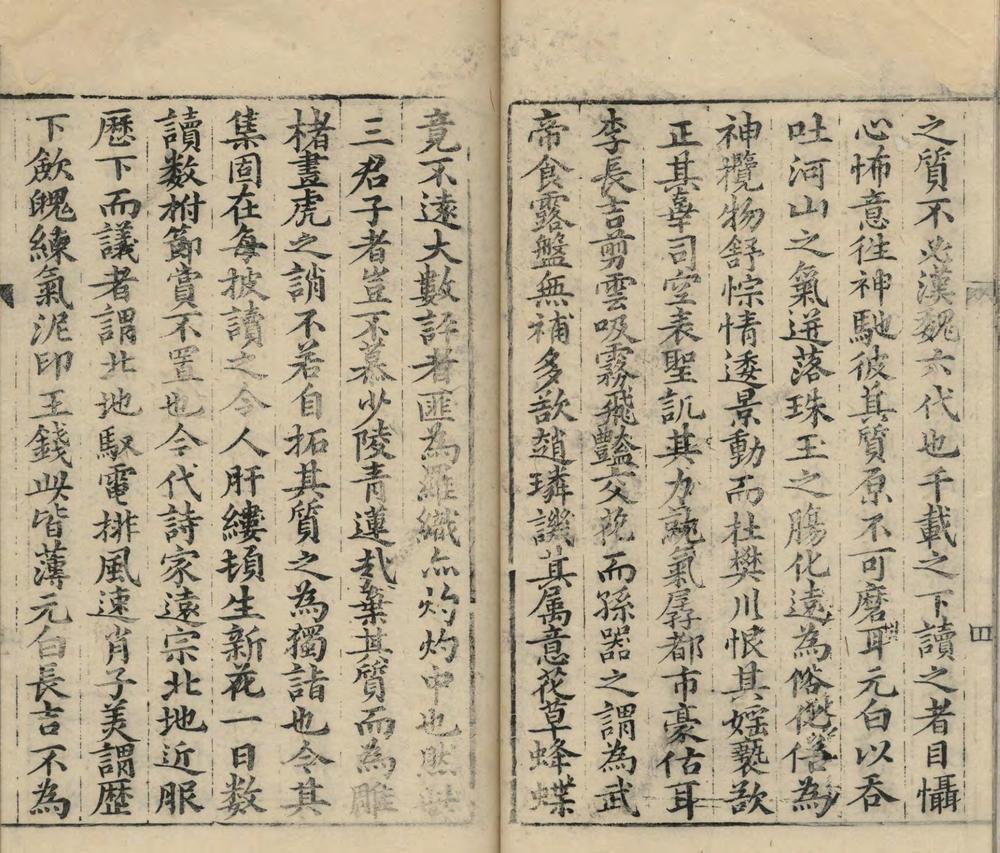 之質不必漢魏六代也千載之下讀之者目懾
心怖意徃神馳彼其質原不可磨耳元白以吞
吐河山之氣迸落珠玉之膓化遠為俗僊僞為
神攬物舒悰情逶景動而杜樊川恨其婬褻欤
正其辜司空表聖訊其力勍氣孱都市豪估耳
李長吉剪雲吸霧飛豔交花而孫器之謂為武
帝食露盤無補多欲趙璘譏其属意花草蜂蝶
竟不遠大數評者匪為羅織亦灼灼中也然
三君子者豈不慕少陵青蓮哉棄其質而為雕
楮畫虎之誚不若自拓其質之為獨詣也令其
集固在每披讀之令人肝縷頓生新花一日数
讀数柎節賞不置也今代詩家遠宗北地近服
歷下而議者謂北地馭電排風速肖子美謂歷
下飲魄練氣泥印王錢此皆薄元白長吉不為
四